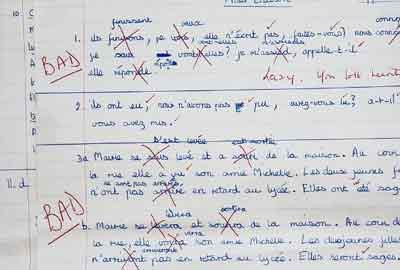 finissent veux conno
1. ils finissons, je vois, elle n'écrit pas, faites-vous? nous conno
je sais vont-elles? je m'assied, appelle-t-il
BAD
elle réponde Lazy. You both learnt
2. ils ont eu, nous n'avons pas pu, avez-vous lu?, a-t-il
vous avez mis.
s'est levée est sortie
3a Marie se suis levé et a sorti de la maison. Au cour d
la rue elle a vu son amie Michelle. Les deux jeunes fi
ne sont pas arrivées
11.d. n'ont pas arrivé en retard au lycée. Elles ont été sag
BAD
lèvera sortira
b. Marie se levera et sortira de la maison. Au cour de
verra
la rue, elle voyra son amie Michelle. Les deux jeunes filles
n'arriveront pas en retard au lycée. Elles seront sages.